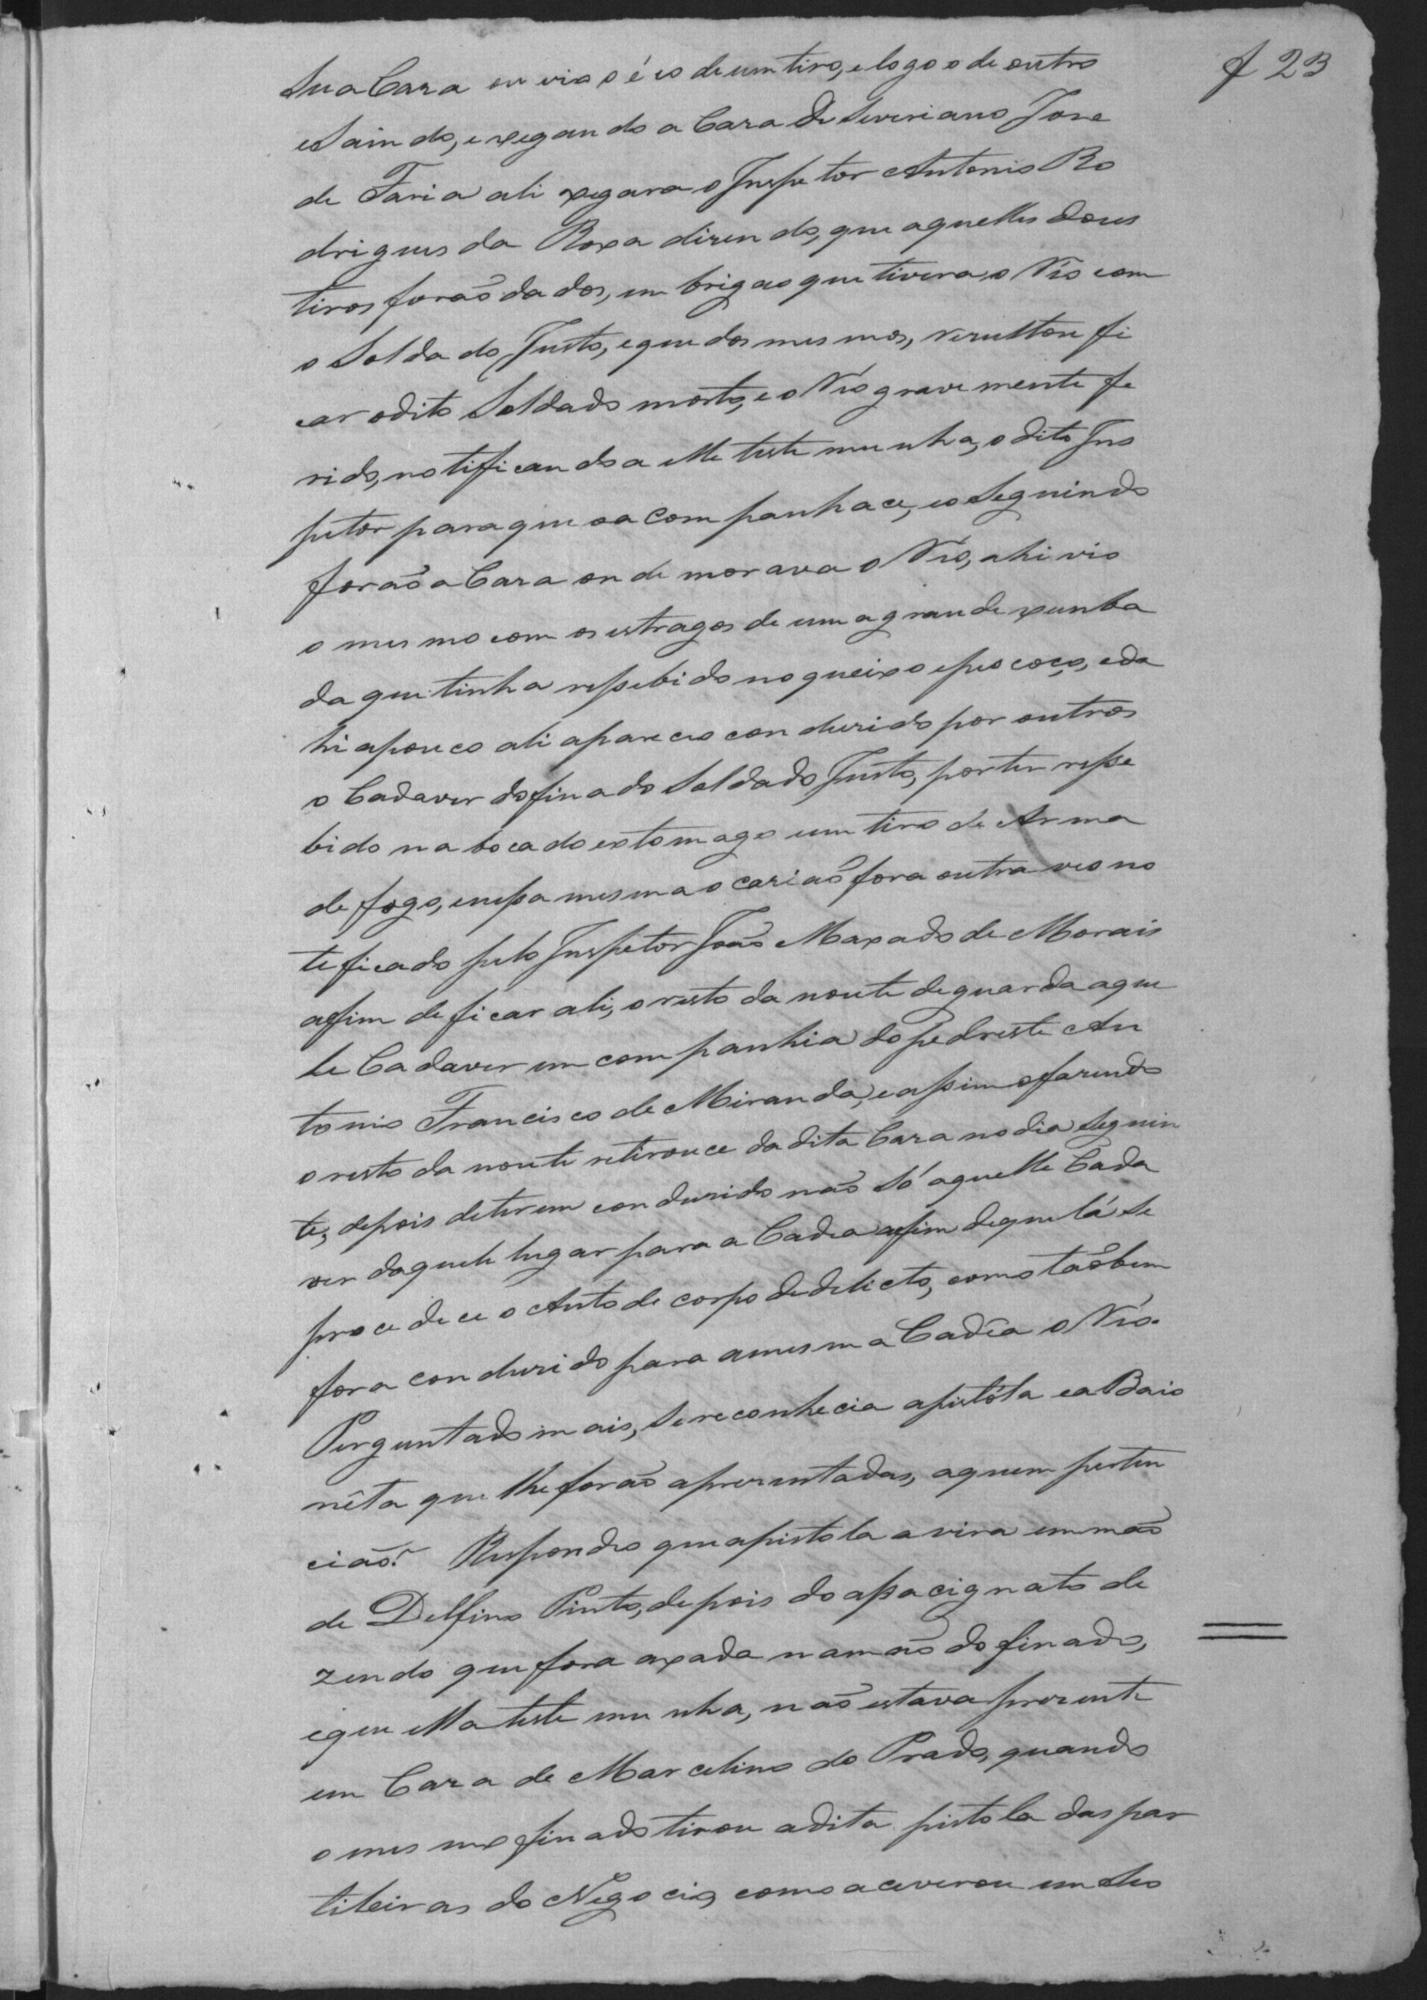 f 23
Sua Caza ouvio o éco de um tiro, e logo o de outro
e Saindo, e xegando a Caza de Severiano Jose
de Faria ali xegara o Inspetor Antonio Ro
drigues da Roxa dizendo, que aquelles dous
tiros forão dados, em briga que tivera o Réo com
o Soldado Justo, e que dos mesmos, rezultou fi
car o dito Soldado morto, e o Réo gravemente fe
rido, notificando a elle testemunha, o dito Ins
petor para que o acompanhace, e o Seguindo
forão a Caza onde morava o Réo, ahi vio
o mesmo com os estragos de uma grande xumba
da que tinha ressebido no queixo e pescoço, e da
hi a pouco ali apareceo conduzido por outros
o Cadaver do finado Soldado Justo, por ter resse
bido na boca do estomago um tiro de Arma
de fogo, e nessa mesma ocazião fora outra ves no
teficado pelo Inspetor João Maxado de Morais
afim de ficar ali, o resto da noute de guarda aque
le Cadaver em companhia do pedreste An
tonio Francisco de Miranda, e assim o fazendo
o resto da noute retirouce da dita Caza no dia Seguin
te, depois de terem conduzido não Só aquelle Cada
ver daquele lugar para a Cadea afim de que lá Se
procedece o Auto de corpo de delicto, como tãobem
fora conduzido para a mesma Cadêa o Réo.
Perguntado mais, Se reconhecia a pistóla e a Baio
nêta que lhe forão aprezentadas, a quem perten
cião? Respondeo que a pistola a vira em mão
de Delfino Pinto, depois do assacignato de
zendo que fora axada na mão do finado,
e que ella testemunha, não estava prezente
em Caza de Marcelino do Prado, quando
o mesmo finado tirou a dita pistola das par
tileiras do Negocio, como aceverou em Seo